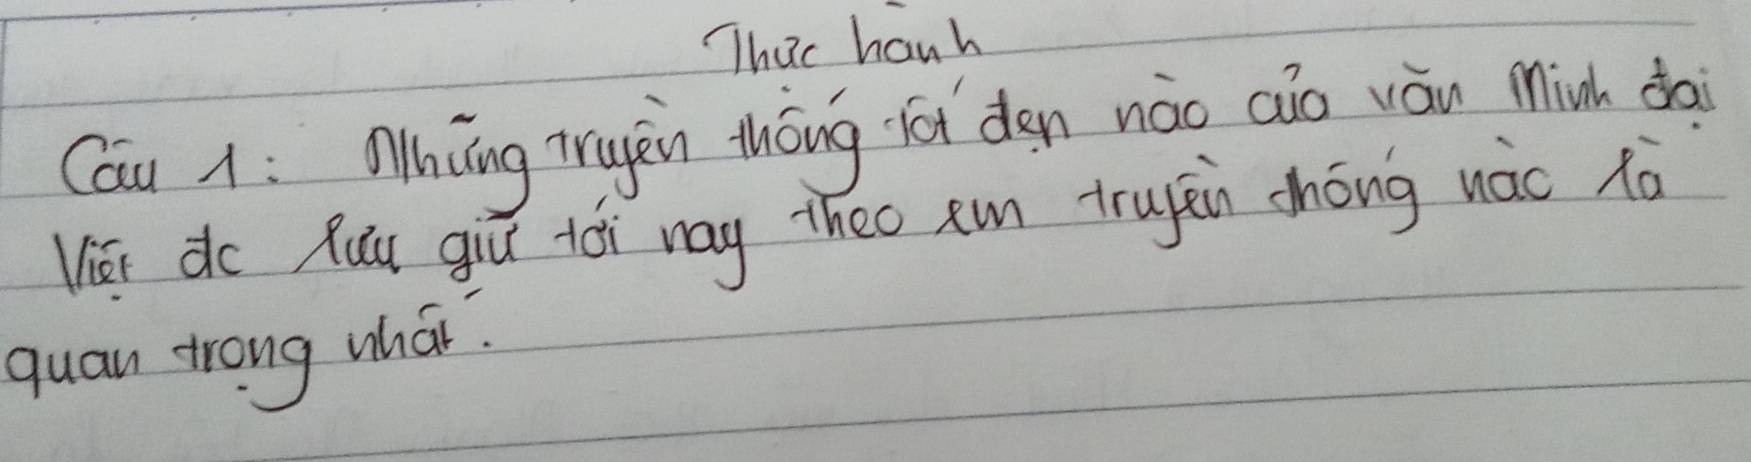 Thực hành
Câu 1: Những truyền thống tốt đẹp nào của văn minh đại
Việt đc lưu giữ tới nay theo em truyền thống nào là
quan trọng nhất.